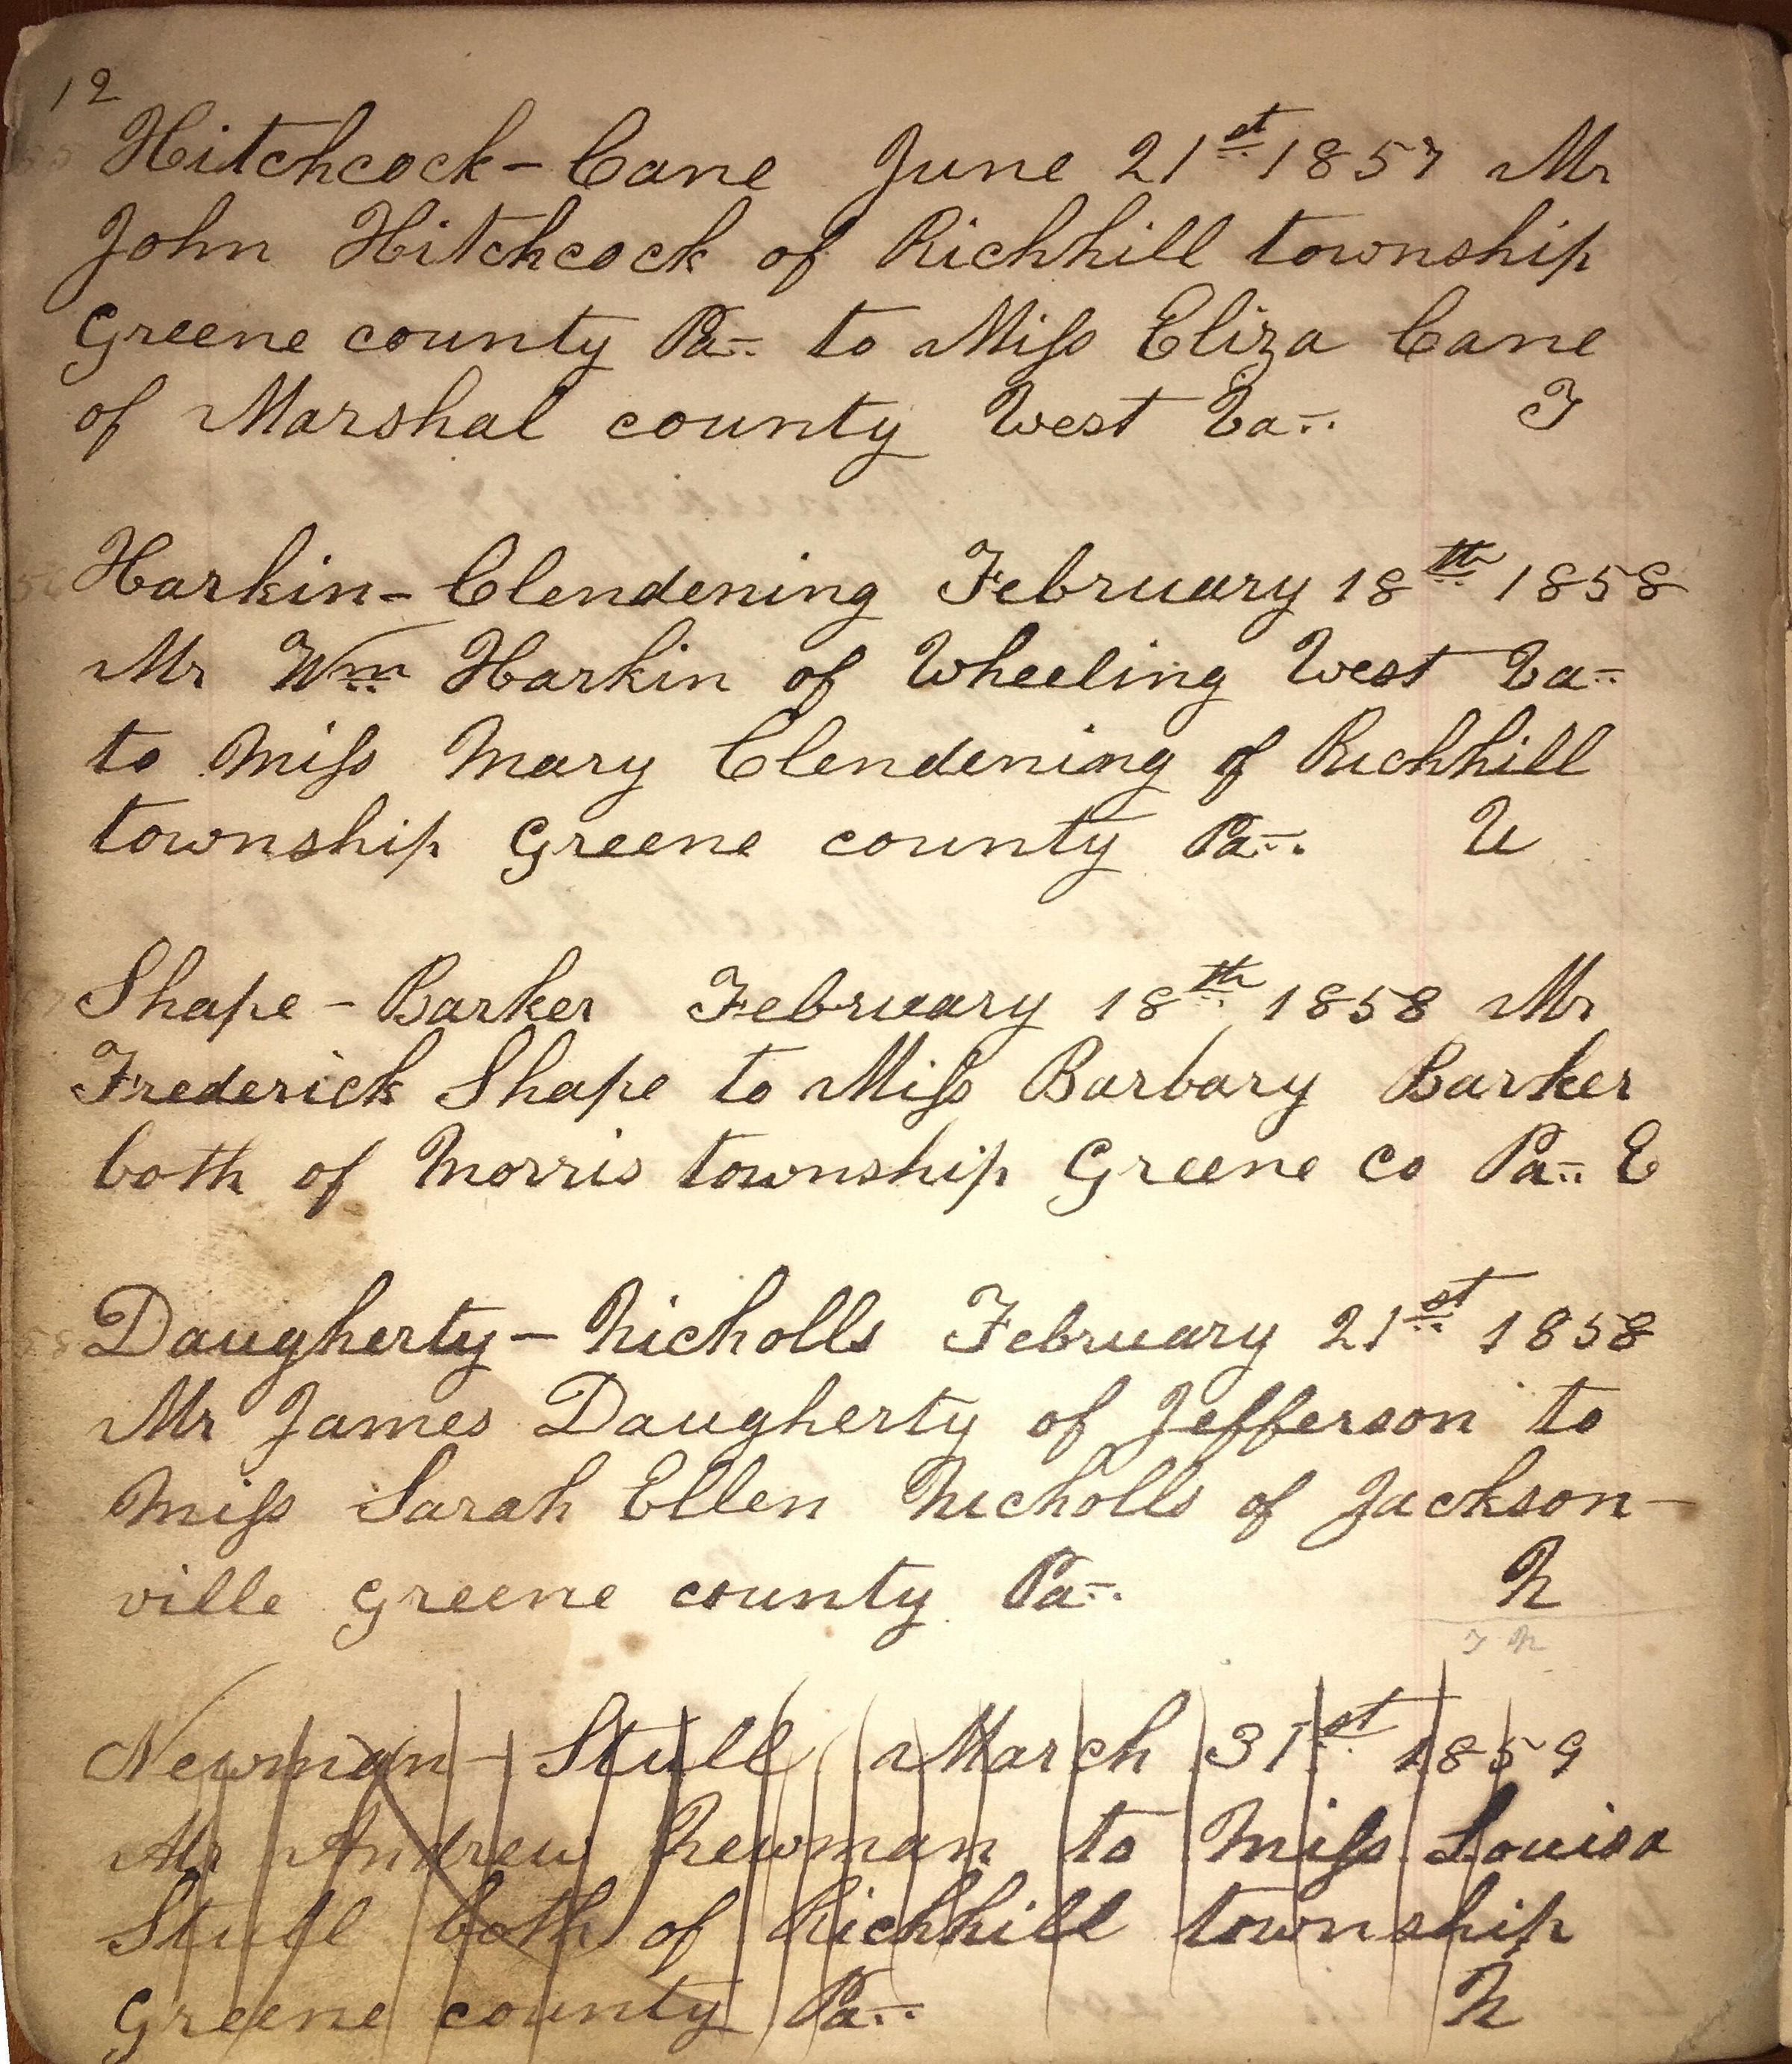 12
Hitchcock - Cane June 21st 1857 Mr
John Hitchcock of Richhill township
Greene county Pa to Miſs Eliza Cane
of Marshal county West Va J
Harkin - Clendening February 18th 1858
Mr Wm Harkin of Wheeling West Va
to Miſs Mary Clendening of Richhill
township Greene county Pa U
Shape - Barker February 18th 1858 Mr
Frederick Shape to Miſs Barbary Barker
both of Morris township Greene co Pa E
Daugherty - Nicholls February 21st 1858
Mr James Daugherty of Jefferson to
Miſs Sarah Ellen Nicholls of Jackson-
ville Greene county Pa N
Newman - Stull March 31st 1859
Mr Andrew Newman to Miſs Louisa
Stull both of Richhill township
Greene county Pa N